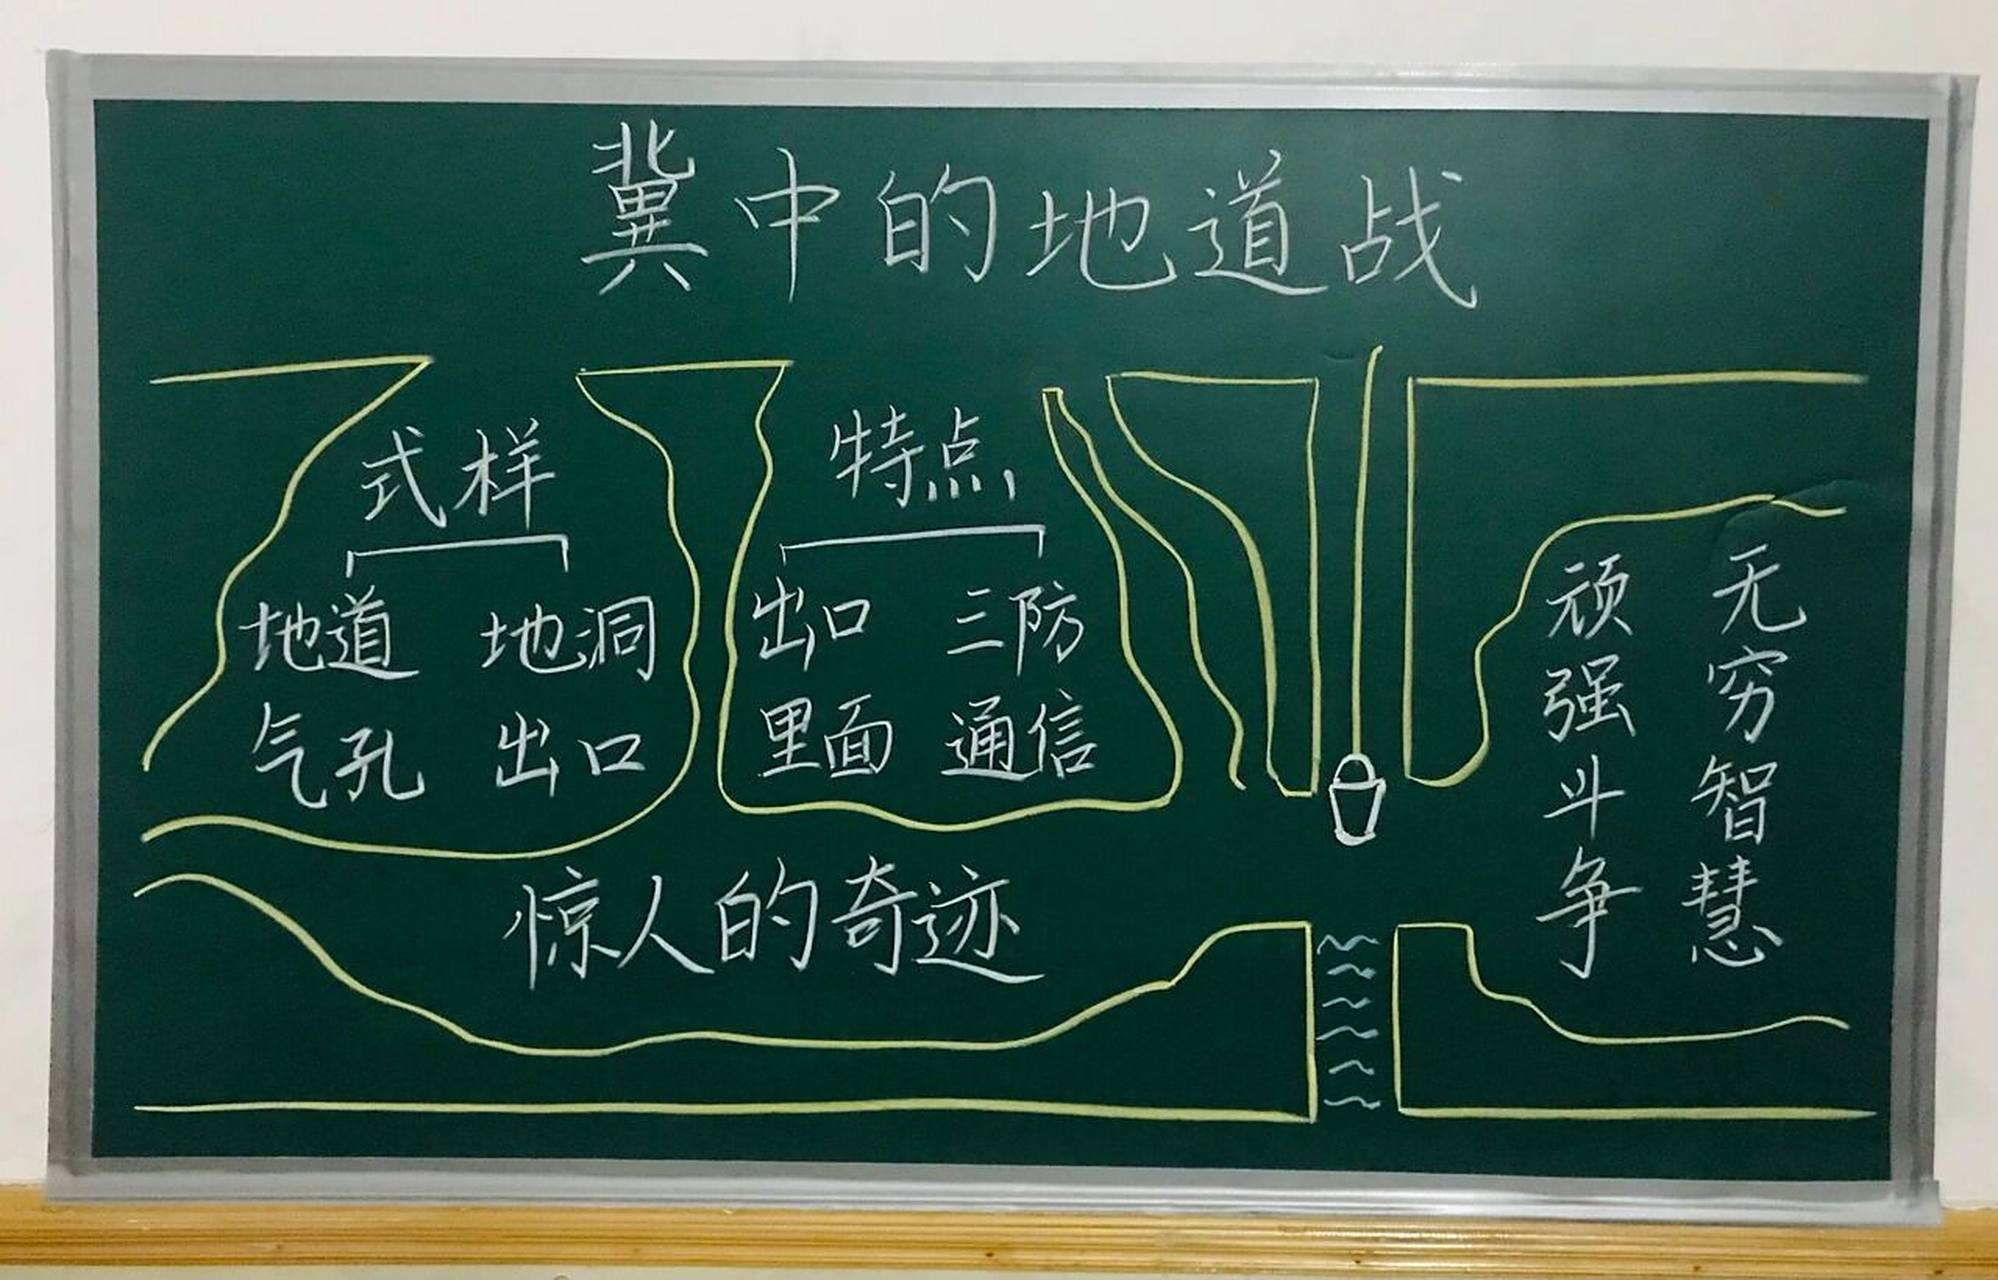 冀中的地道战
式样
地道 地洞
气孔 出口
特点
出口 三防
里面 通信
惊人的奇迹
顽强斗争
无穷智慧